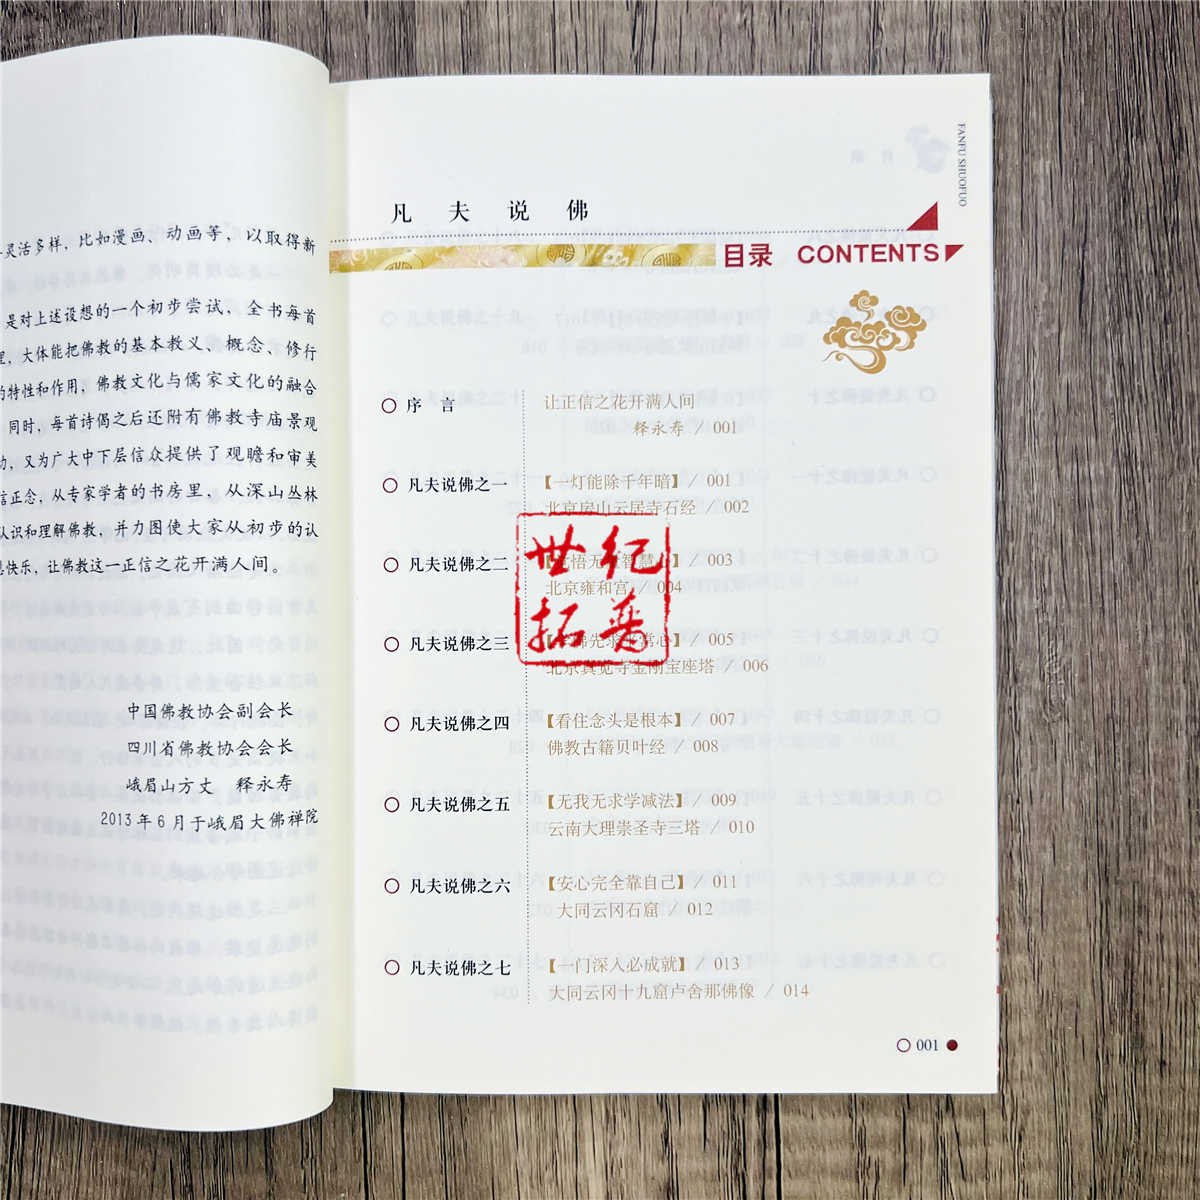 灵活多样，比如漫画、动画等，以取得新
是对上述设想的一个初步尝试，全书每首
里，大体能把佛教的基本教义、概念、修行
的特性和作用，佛教文化与儒家文化的融合
同时，每首诗偈之后还附有佛教寺庙景观
，又为广大中下层信众提供了观瞻和审美
信正念，从专家学者的书房里，从深山丛林
认识和理解佛教，并力图使大家从初步的认
快乐，让佛教这一正信之花开满人间。
中国佛教协会副会长
四川省佛教协会会长
峨眉山方丈 释永寿
2013年6月于峨眉大佛禅院
FANFU SHUOFUO
凡夫说佛
目录 CONTENTS
序言 让正信之花开满人间
释永寿 / 001
凡夫说佛之一 【一灯能除千年暗】/ 001
北京房山云居寺石经 / 002
凡夫说佛之二 悟无 智慧 / 003
北京雍和宫 / 004
凡夫说佛之三 【学佛先求平常心】/ 005
北京真觉寺金刚宝座塔 / 006
凡夫说佛之四 【看住念头是根本】/ 007
佛教古籍贝叶经 / 008
凡夫说佛之五 【无我无求学减法】/ 009
云南大理崇圣寺三塔 / 010
凡夫说佛之六 【安心完全靠自己】/ 011
大同云冈石窟 / 012
凡夫说佛之七 【一门深入必成就】/ 013
大同云冈十九窟卢舍那佛像 / 014
001
世纪
拓普